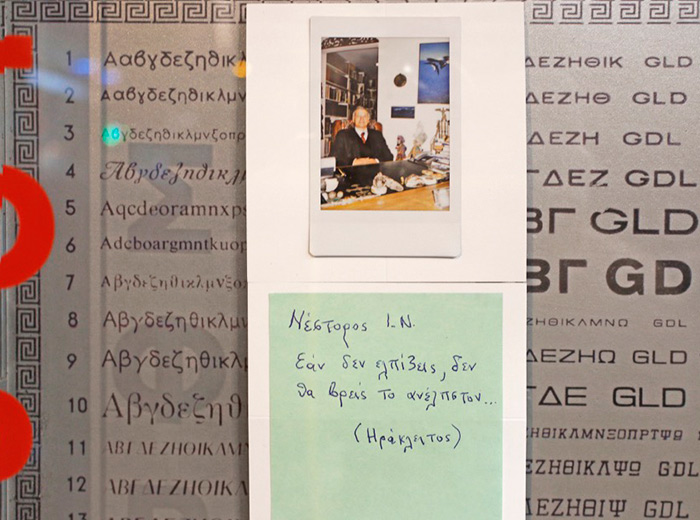 1 ΑαβγδεζηθικΛ ΔΕΖΗΘΙΚ GLD
2 Ααβγδεζηθικλμν ΔΕΖΗΘ GLD
3 Αβγδεζηθικλμνξοπρ ΔΕΖΗ GDL
4 Αβγδεζηθικλμ ΓΔΕΖ GDL
5 Aqcdeoramnxps ΒΓ GLD
6 Adcboargmntkuop ΒΓ GD
7 Αβγδεζηθικλμνξο ΖΗΘΙΚΛΜΝΩ GLD
8 Αβγδεζηθικλμ ΔΕΖΗΩ GLD
9 Αβγδεζηθικλ ΓΔΕ GLD
10 Αβγδεζηθ ΖΗΘΙΚΛΜΝΞΟΠΡΤΨΩ
11 ΑΒΓΔΕΖΗΘΙΚΛΜ ΕΖΗΘΙΚΛΨΩ GDL
12 ΑΒΓΔΕΖΗΘΙΚΛ ΔΕΖΗΘΙΨ GDL
13
Νέστορος Ι.Ν.
Εάν δεν ελπίζεις, δεν
θα βρεις το ανέλπιστον...
(Ηράκλειτος)